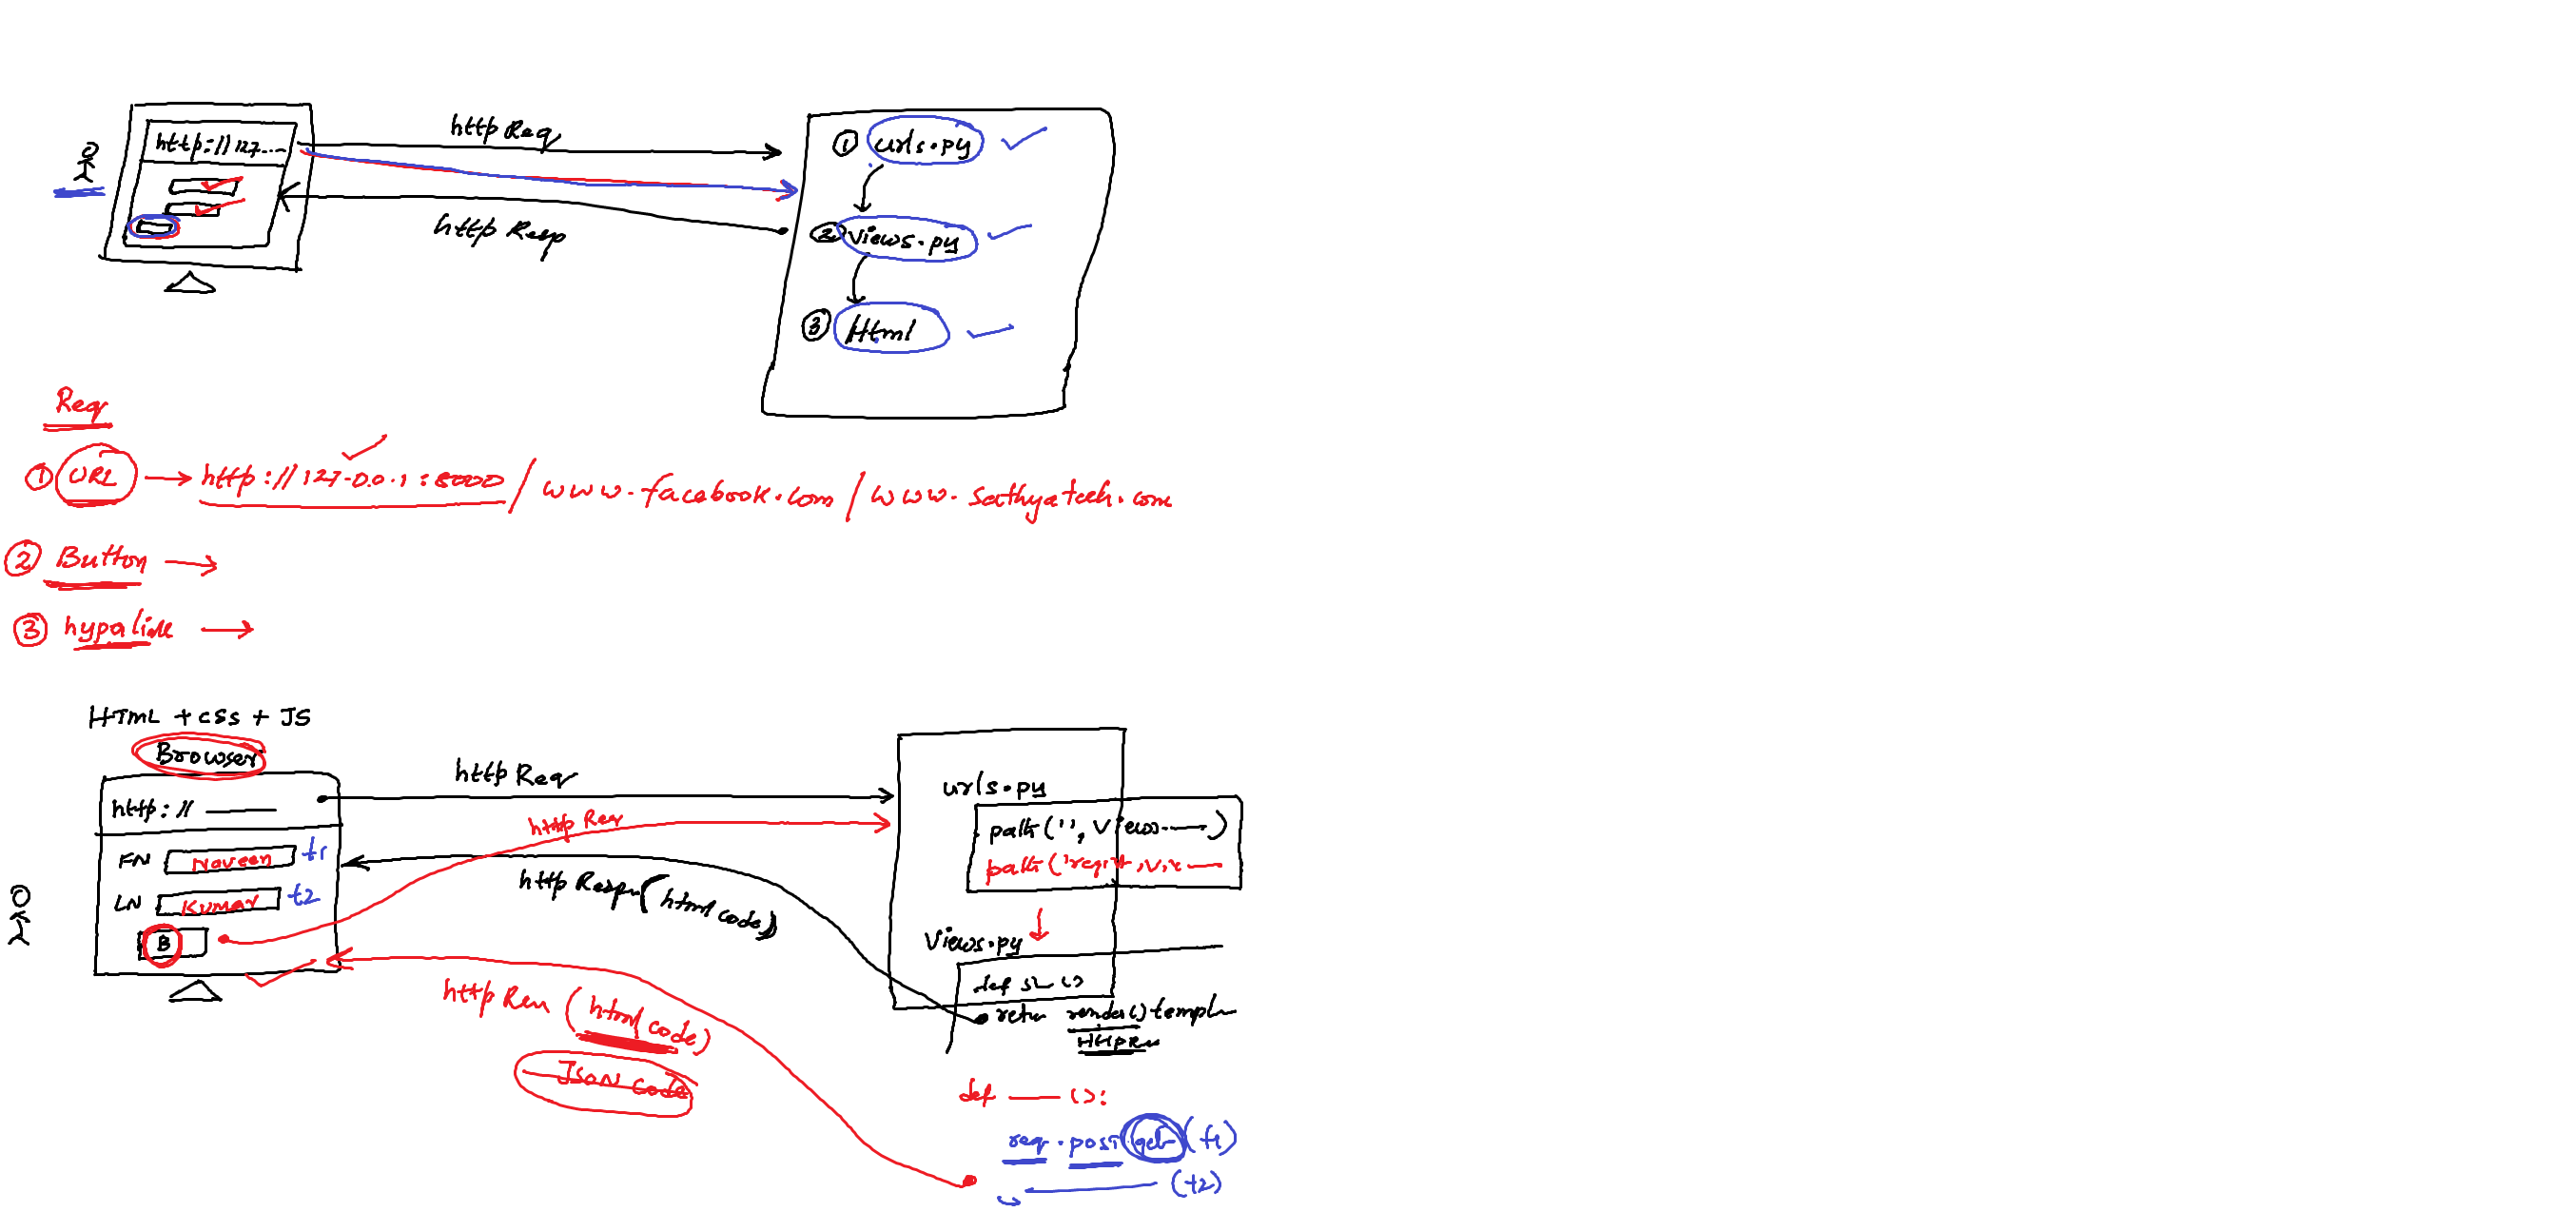 http://127...
http Req
http Resp
① urls.py
② views.py
③ Html
Req
① URL → http://127.0.0.1:8000 / www.facebook.com / www.sathyatech.com
② Button →
③
HTML + CSS + JS
Browser
http://
FN Naveen t1
LN Kumar t2
B
http Req
http Req
(html code)
http (html code)
JSON code
urls.py
path('', views. )
path('
views.py
def ()
render() templ
def ():
req.post get (t1)
(t2)